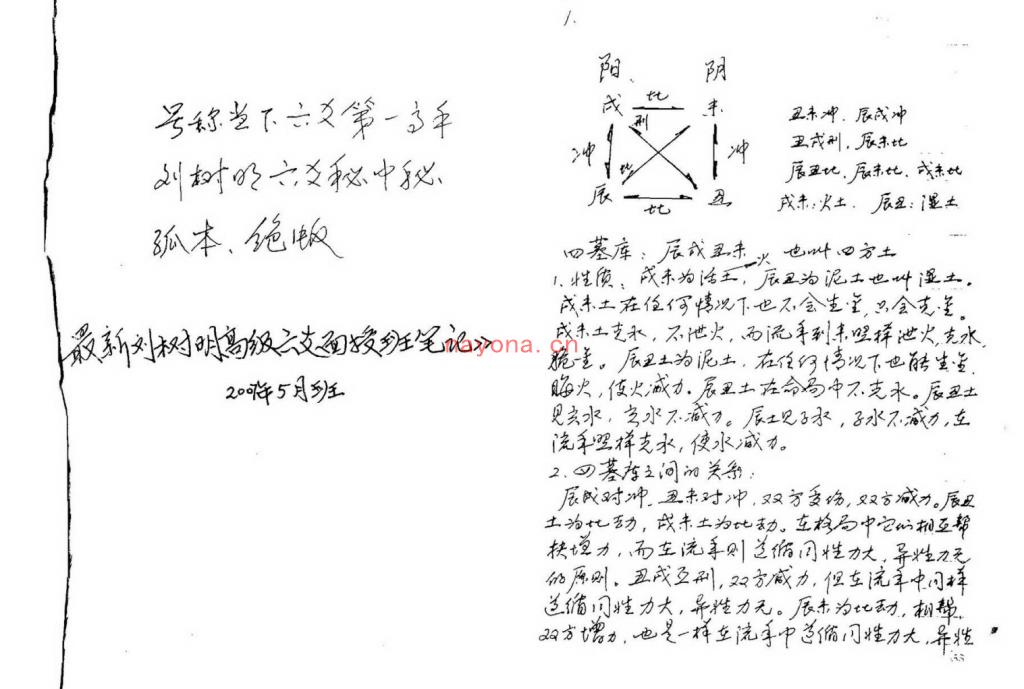 号称当下六爻第一高手
刘树明六爻秘中秘
孤本、绝版
最新刘树明高级六爻面授班笔记》
2007年5月班
nayona.cn
1.
阳、 阴
戌 比 未
刑
冲 比 冲
辰 比 丑
丑未冲、辰戌冲
丑戌刑、辰未比
辰丑比、辰未比、戌未比
戌未:火土、辰丑:湿土
四墓库:辰戌丑未 也叫四方土
火
1.性质、戌未为活土,辰丑为泥土也叫湿土。
戌未土在任何情况下也不会生金,只会克金。
戌未土克水,不泄火,而流年到来照样泄火,克水,
脆金。辰丑土为泥土,在任何情况下也能生金,
晦火,使火减力。辰丑土在命局中不克水。辰丑土
见亥水,亥水不减力。辰土见子水,子水不减力,在
流年照样克水,使水减力。
2.四墓库之间的关系:
辰戌对冲、丑未对冲,双方受伤,双方减力。辰丑
土为比劫,戌未土为比劫。在格局中它们相互帮
扶增力,而在流年则遵循同性力大,异性力无
的原则。丑戌互刑,双方减力,但在流年中同样
遵循同性力大,异性力无。辰未为比劫,相帮,
双方增力,也是一样在流年中遵循同性力大,异性